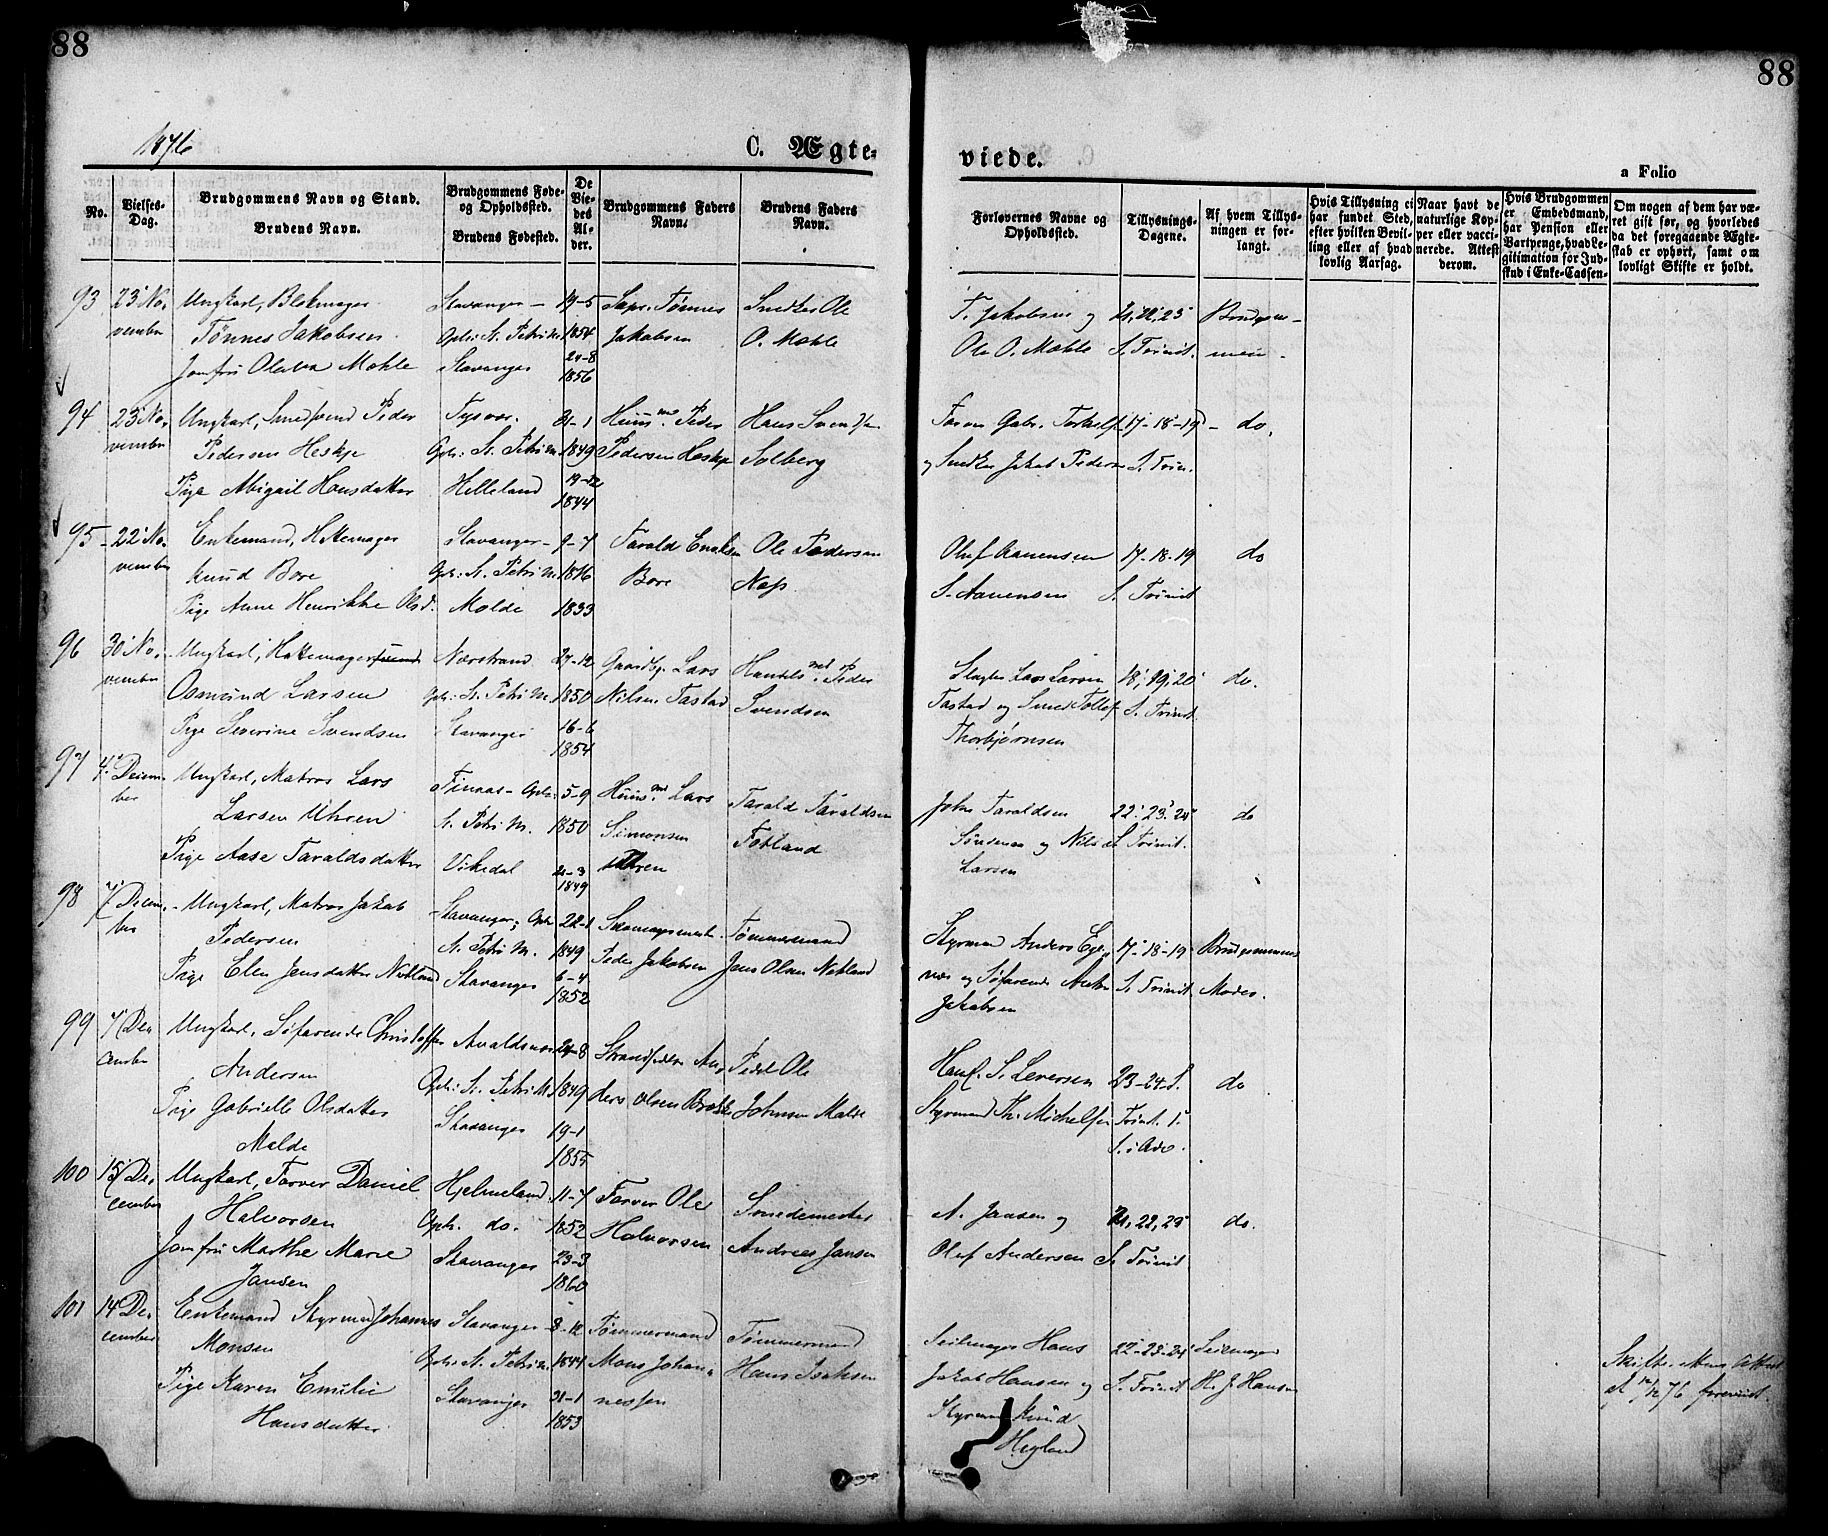 88
88
1876
C. Ægte-
viede.
a Folio
No.
Vielses-
Dag.
Brudgommens Navn og Stand.
Brudens Navn.
Brudgommens Føde-
og Opholdssted.
Brudens Fødested.
De
Vie-
des
Al-
der.
Brudgommens Faders
Navn.
Brudens Faders
Navn.
Forlovernes Navne og
Opholdssted.
Tillysnings-
Dagene.
Af hvem Tillys-
ningen er for-
langt.
Hvis Tillysning ei
har fundet Sted,
efter hvilken Bevil-
ling eller af hvad
lovlig Aarsag.
Naar havt de
naturlige Kop-
per eller vacci-
nerede. Attest
derom.
Hvis Brudgommen
er Embedsmand,
har Pension eller
Vartpenge, hvad Le-
gitimation for Ind-
skud i Enke-Cassen.
Om nogen af dem har væ-
ret gift før, og hvorledes
da det foregaaende Ægte-
skab er ophørt, samt om
lovligt Skifte er holdt.
93 23 No- Ungkarl, Stavanger - 19-5 Tønnes Snedker Ole T. Jakobsen og 21, 22, 23 Brudgom-
vember Tønnes Jakobsen Oph: St. Petri M. 1854 Jakobsen O. Mæhle Ole O. Mæhle S. Trinit. men.
Jomfru Olava Mæhle Stavanger 1856
94 23 No- Ungkarl, Smedsvend Peder Tysvær. 31-1 Huusmd Peder Hans Svends. Gabr. Torkels. 17-18-19 do.
vember Pedersen Heskje Oph: St. Petri M. 1849 Pedersen Heskje Solberg og Snedker Jakob Pedersen S. Trin.
Pige Abigail Hansdatter Helleland 19-12
1844
95 22 No- Enkemand, Hattemager Stavanger- 9-7 Tarald Ole Pedersen Oluf Aanensen 17-18-19 do
vember Knud Bore Oph: St. Petri M. 1816 Bore Næs. S. Aanensen S. Trinit
Pige Anne Henrikke Olsd. Molde 1833
96 30 No- Ungkarl, Hattemagersvend Nærstrand 27-12 Gaardbr. Lars Peder Slagter Lars Larsen 18, 19, 20 do.
vember Osmund Larsen Oph: St. Petri M. 1850 Nilsen Tastad Svendsen Tastad og Smed Tollef S. Trinit
Pige Severine Svendsen Stavanger 16-6 Thorbjørnsen
1854
97 4 Decem- Ungkarl, Matros Lars Finaas- Oph: 5-9 Huusmd Lars Tarald Taraldsen John Taraldsen 22, 23, 24 do
ber Larsen Uhren St. Petri M. 1850 Simonsen Fotland og Nils S. Trinit.
Pige Aase Taraldsdatter Vikedal 21-3 Uhren Larsen
1849
98 7 Decem- Ungkarl, Matros Jakob Stavanger; Oph: 22-1 Tømmermand Styrmand Anders 17-18-19 Brudgommens
ber Pedersen St. Petri M. 1849 Peder Jakobsen Jens Olsen og Søfarende S. Trinit Moder.
Pige Elen Jensdatter Stavanger 6-4 Jakobsen
1852
99 7 De- Ungkarl, Søfarende Christoffer Avaldsnæs 24-8 An- Ole Hans. S. Levorsen 23-24 S. do
cember Andersen Oph: St. Petri M. 1849 ders Olsen Johnsen Malde Styrmand Th. Michelsen Trinit. 1.
Pige Gabrielle Olsdatter Stavanger 19-1 S. i Adv.
Malde 1855
100 15 De- Ungkarl, Farver Daniel Hjelmeland 11-7 Farver Ole Smedemester A. Jansen og 21, 22, 23 do.
cember Halvorsen Oph. do. 1852 Halvorsen Andreas Jansen Oluf Andersen S. Trinit
Jomfru Marthe Marie Stavanger 23-3
Jansen 1860
101 14 De- Enkemand Styrmand Johannes Stavanger 8-12 Tømmermand Tømmermand Seilmager Hans 22-23-24 Seilmager
cember Monsen Oph: St. Petri M. 1844 Mons Johan- Hans Isaksen Jakob Hansen og S. Trinit H. J. Hansen Skifte Attest
Pige Karen Emilie Stavanger 31-1 nessen Styrmand Knud af 12/12 76 forevist.
Hansdatter 1853 Høgland